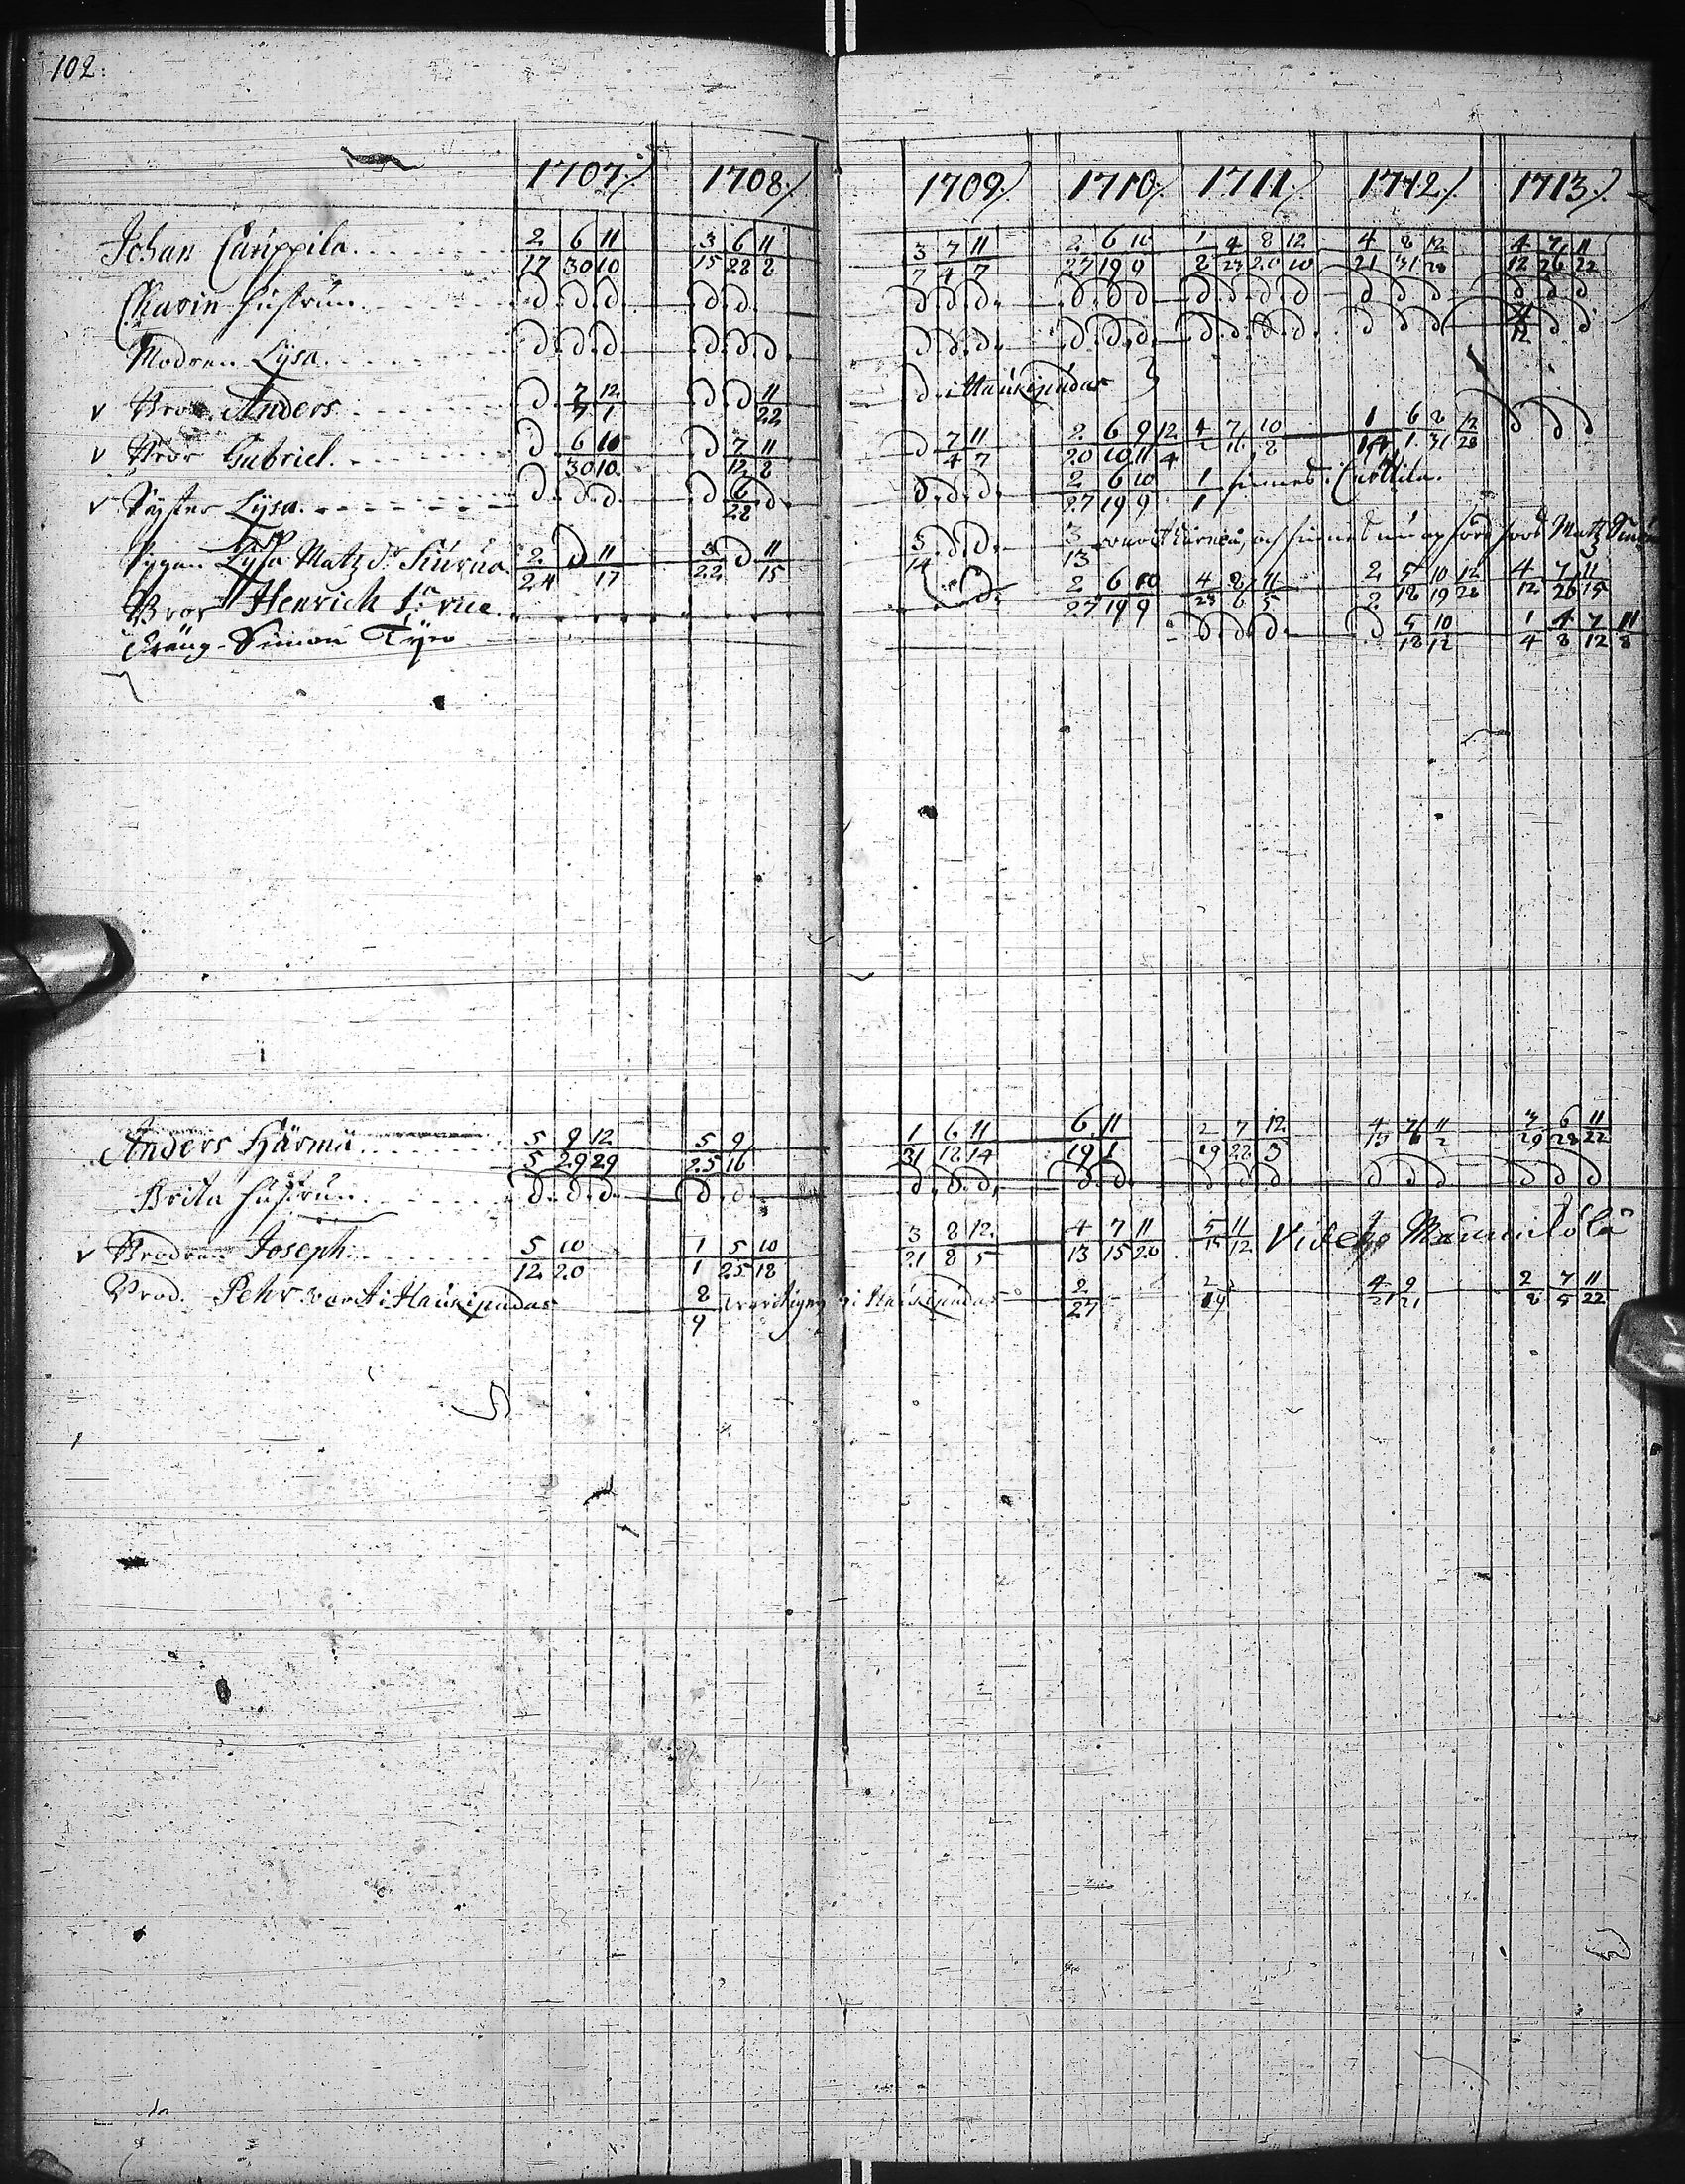 102.
1707. 1708. 1709. 1710. 1711. 1712. 1713.
Johan Carippila 2/17 6/30 11/10 3/15 6/28 11/8 3/7 7/4 11/7 2/27 6/19 10/9 1/8 4/23 8/20 12/10 4/21 8/31 12/28 4/12 7/26 11/22
Charin hustrun d. d. d. d. d. d. d. d. d. d. d. d. d. d. d. d. d. d. d. d. d.
Modren Lÿsa d. d. d. d. d. d. d. d. d. d. d. d. d. d. d. d. d. d. d. 4/12 d d
v Bror Anders d. 7/4 12/1 d d 11/22 d. i Haukipudas
v Bror Gabriel d 6/30 10/10 d 7/12 11/8 d 7/4 11/7 2/20 6/10 9/11 12/4 4/2 7/11 10/8 1/14 6/1 8/31 12/28 d d d
v Syster Lÿsa d. d. d. d 6/28 d. d. d. d. 2/27 6/19 10/9 1/1 finnes i Cuottila.
Pigan Lÿsa Matz dr Kurua 2/24 d 11/17 3/22 d 11/15 3/14 d. d. 3/13 och finnes Matz
Bror Henrich 2/27 6/19 10/9 4/23 8/6 11/5 2/2 5/18 10/19 12/28 4/12 7/26 11/15
Dräng Simon Tÿni d. d. d. d 5/18 10/12 1/4 4/8 7/12 11/8
Anders Härmä 5/5 9/29 12/29 5/25 9/16 1/31 6/12 11/14 6/19 11/1 2/19 7/22 12/3 4/13 7/6 11/2 3/29 6/28 11/22
Brita hustrun d. d. d. d. d. d. d. d. d. d. d d d. d d d d d d
v Brodren Joseph 5/12 10/20 1/1 5/25 10/18 3/21 8/8 12/5 4/13 7/15 11/20 5/15 11/12 Vide
Brod. Pehr warit i Haukipudas 8/9 i Haukipudas 2/27 2/19 4/21 9/21 2/8 7/5 11/22